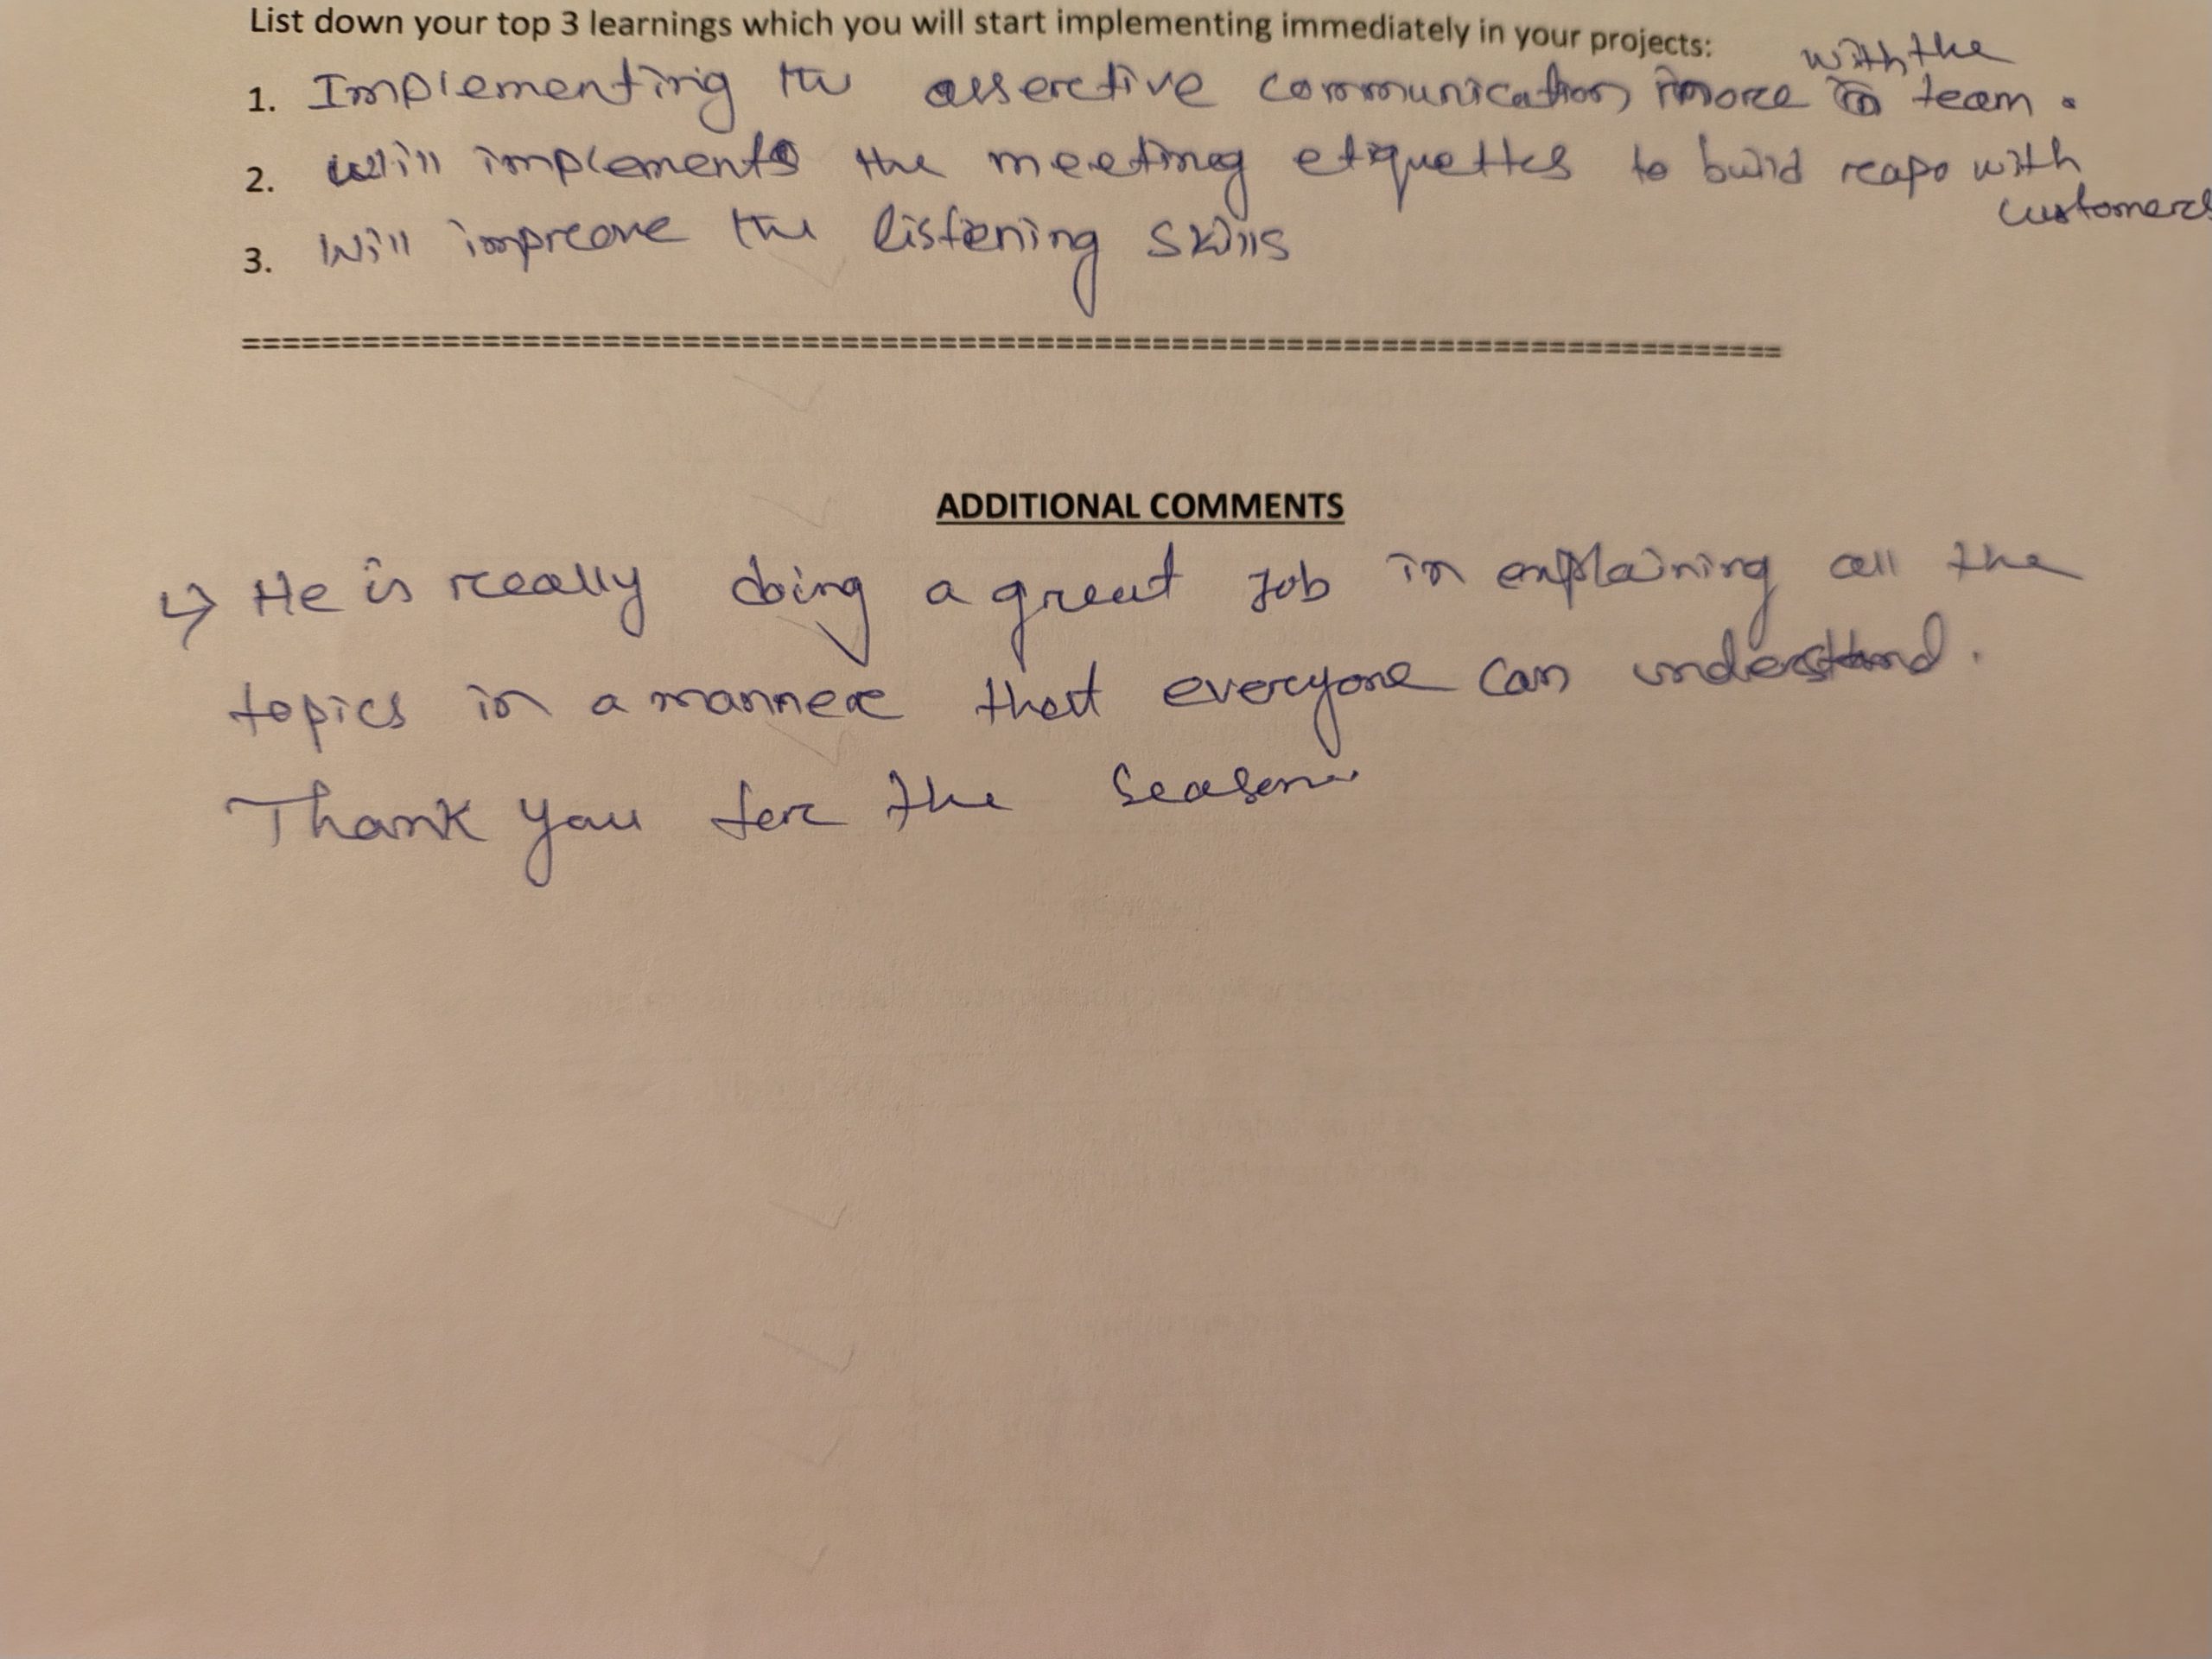 List down your top 3 learnings which you will start implementing immediately in your projects:
1. Implementing the assertive communication more with the team.
2. Will implements the meeting etiquettes to build rapo with customers
3. Will improve the listening skills
================================================================================
ADDITIONAL COMMENTS
↳ He is really doing a great Job in explaining all the
topics in a manner that everyone can understand.
Thank you for the Season.